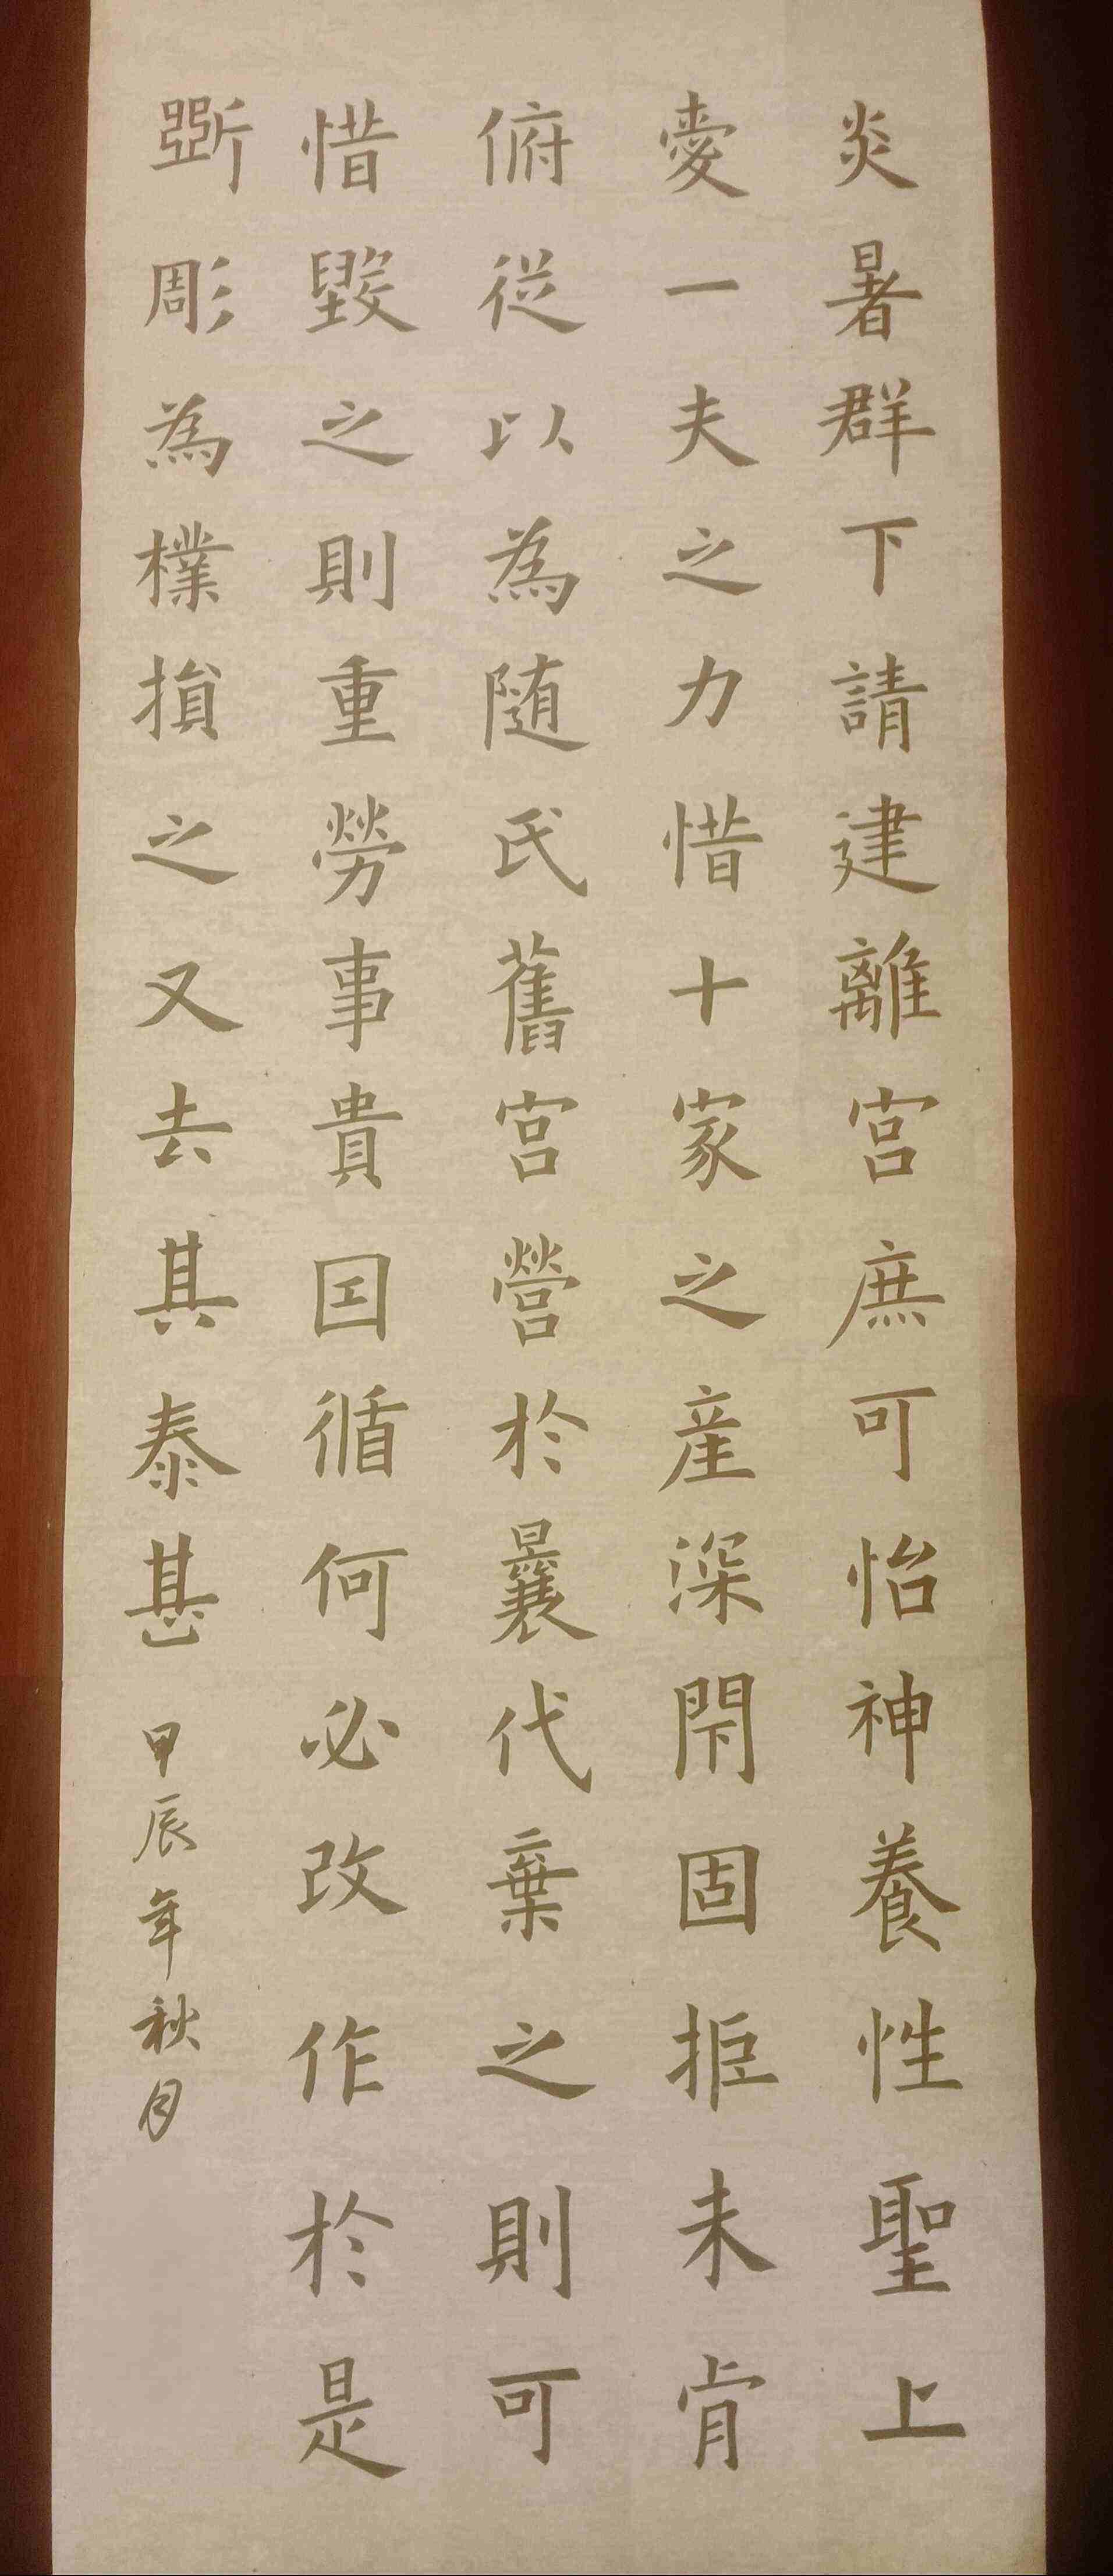 炎暑群下請建離宮庶可怡神養性聖上
愛一夫之力惜十家之産深閇固拒未肯
俯從以為随氏舊宮營於曩代棄之則可
惜毀之則重勞事貴因循何必改作於是
斲彫為樸損之又去其泰甚
甲辰年秋月